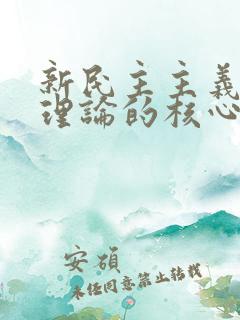 新民主主義
理論的核心
安碩
未经同意禁止转载